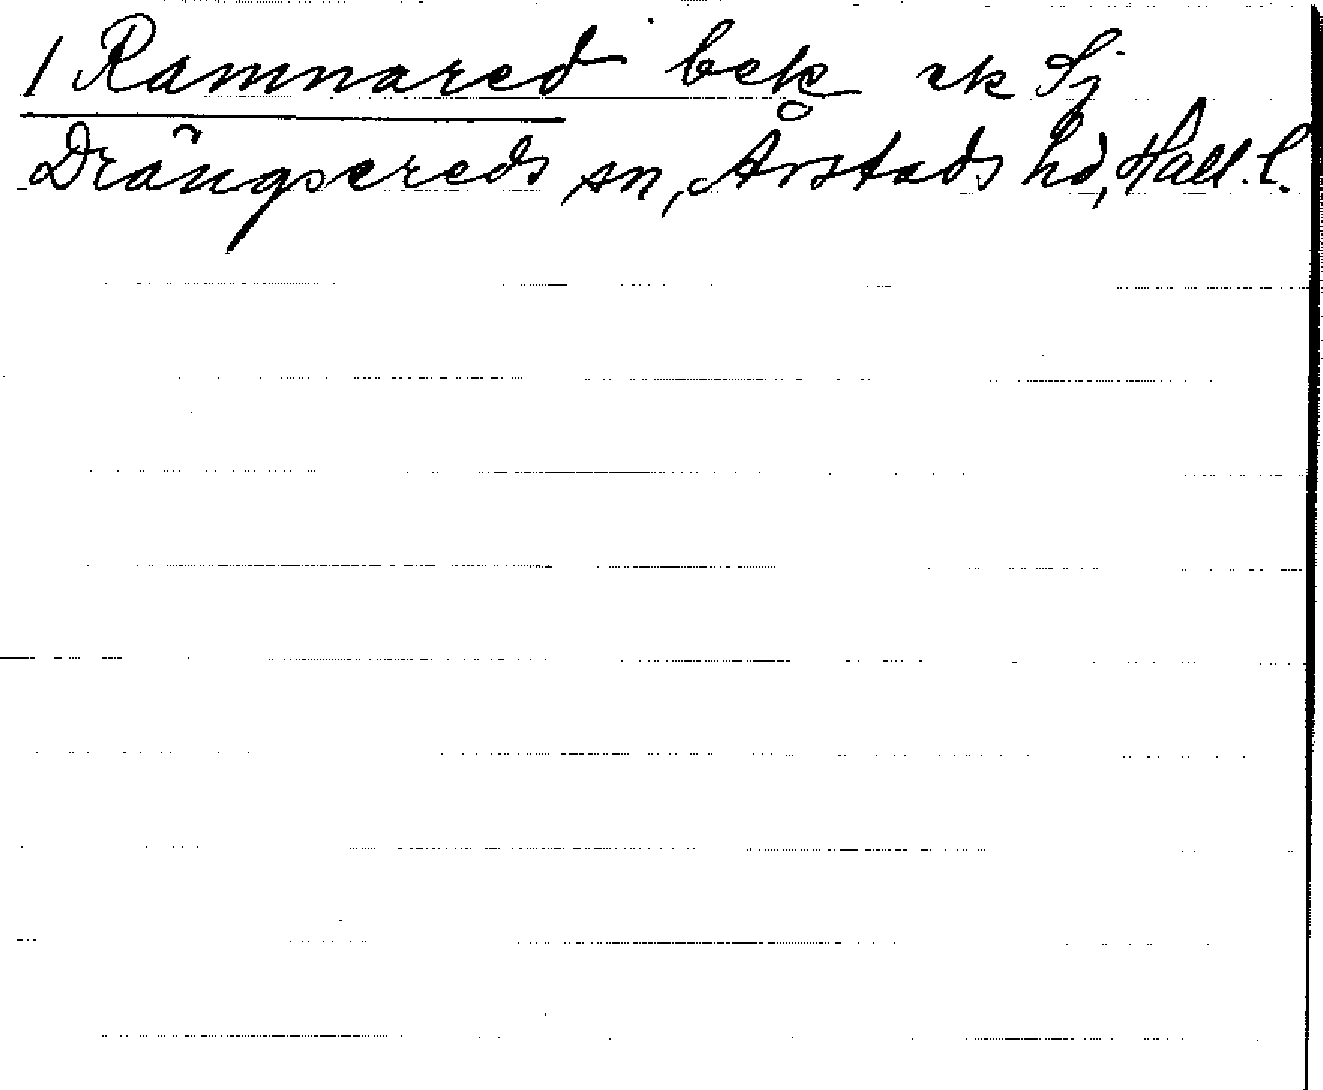 1 Ramnared bek rk Sj
Drängsereds sn, Årstads hd, Hall. l.